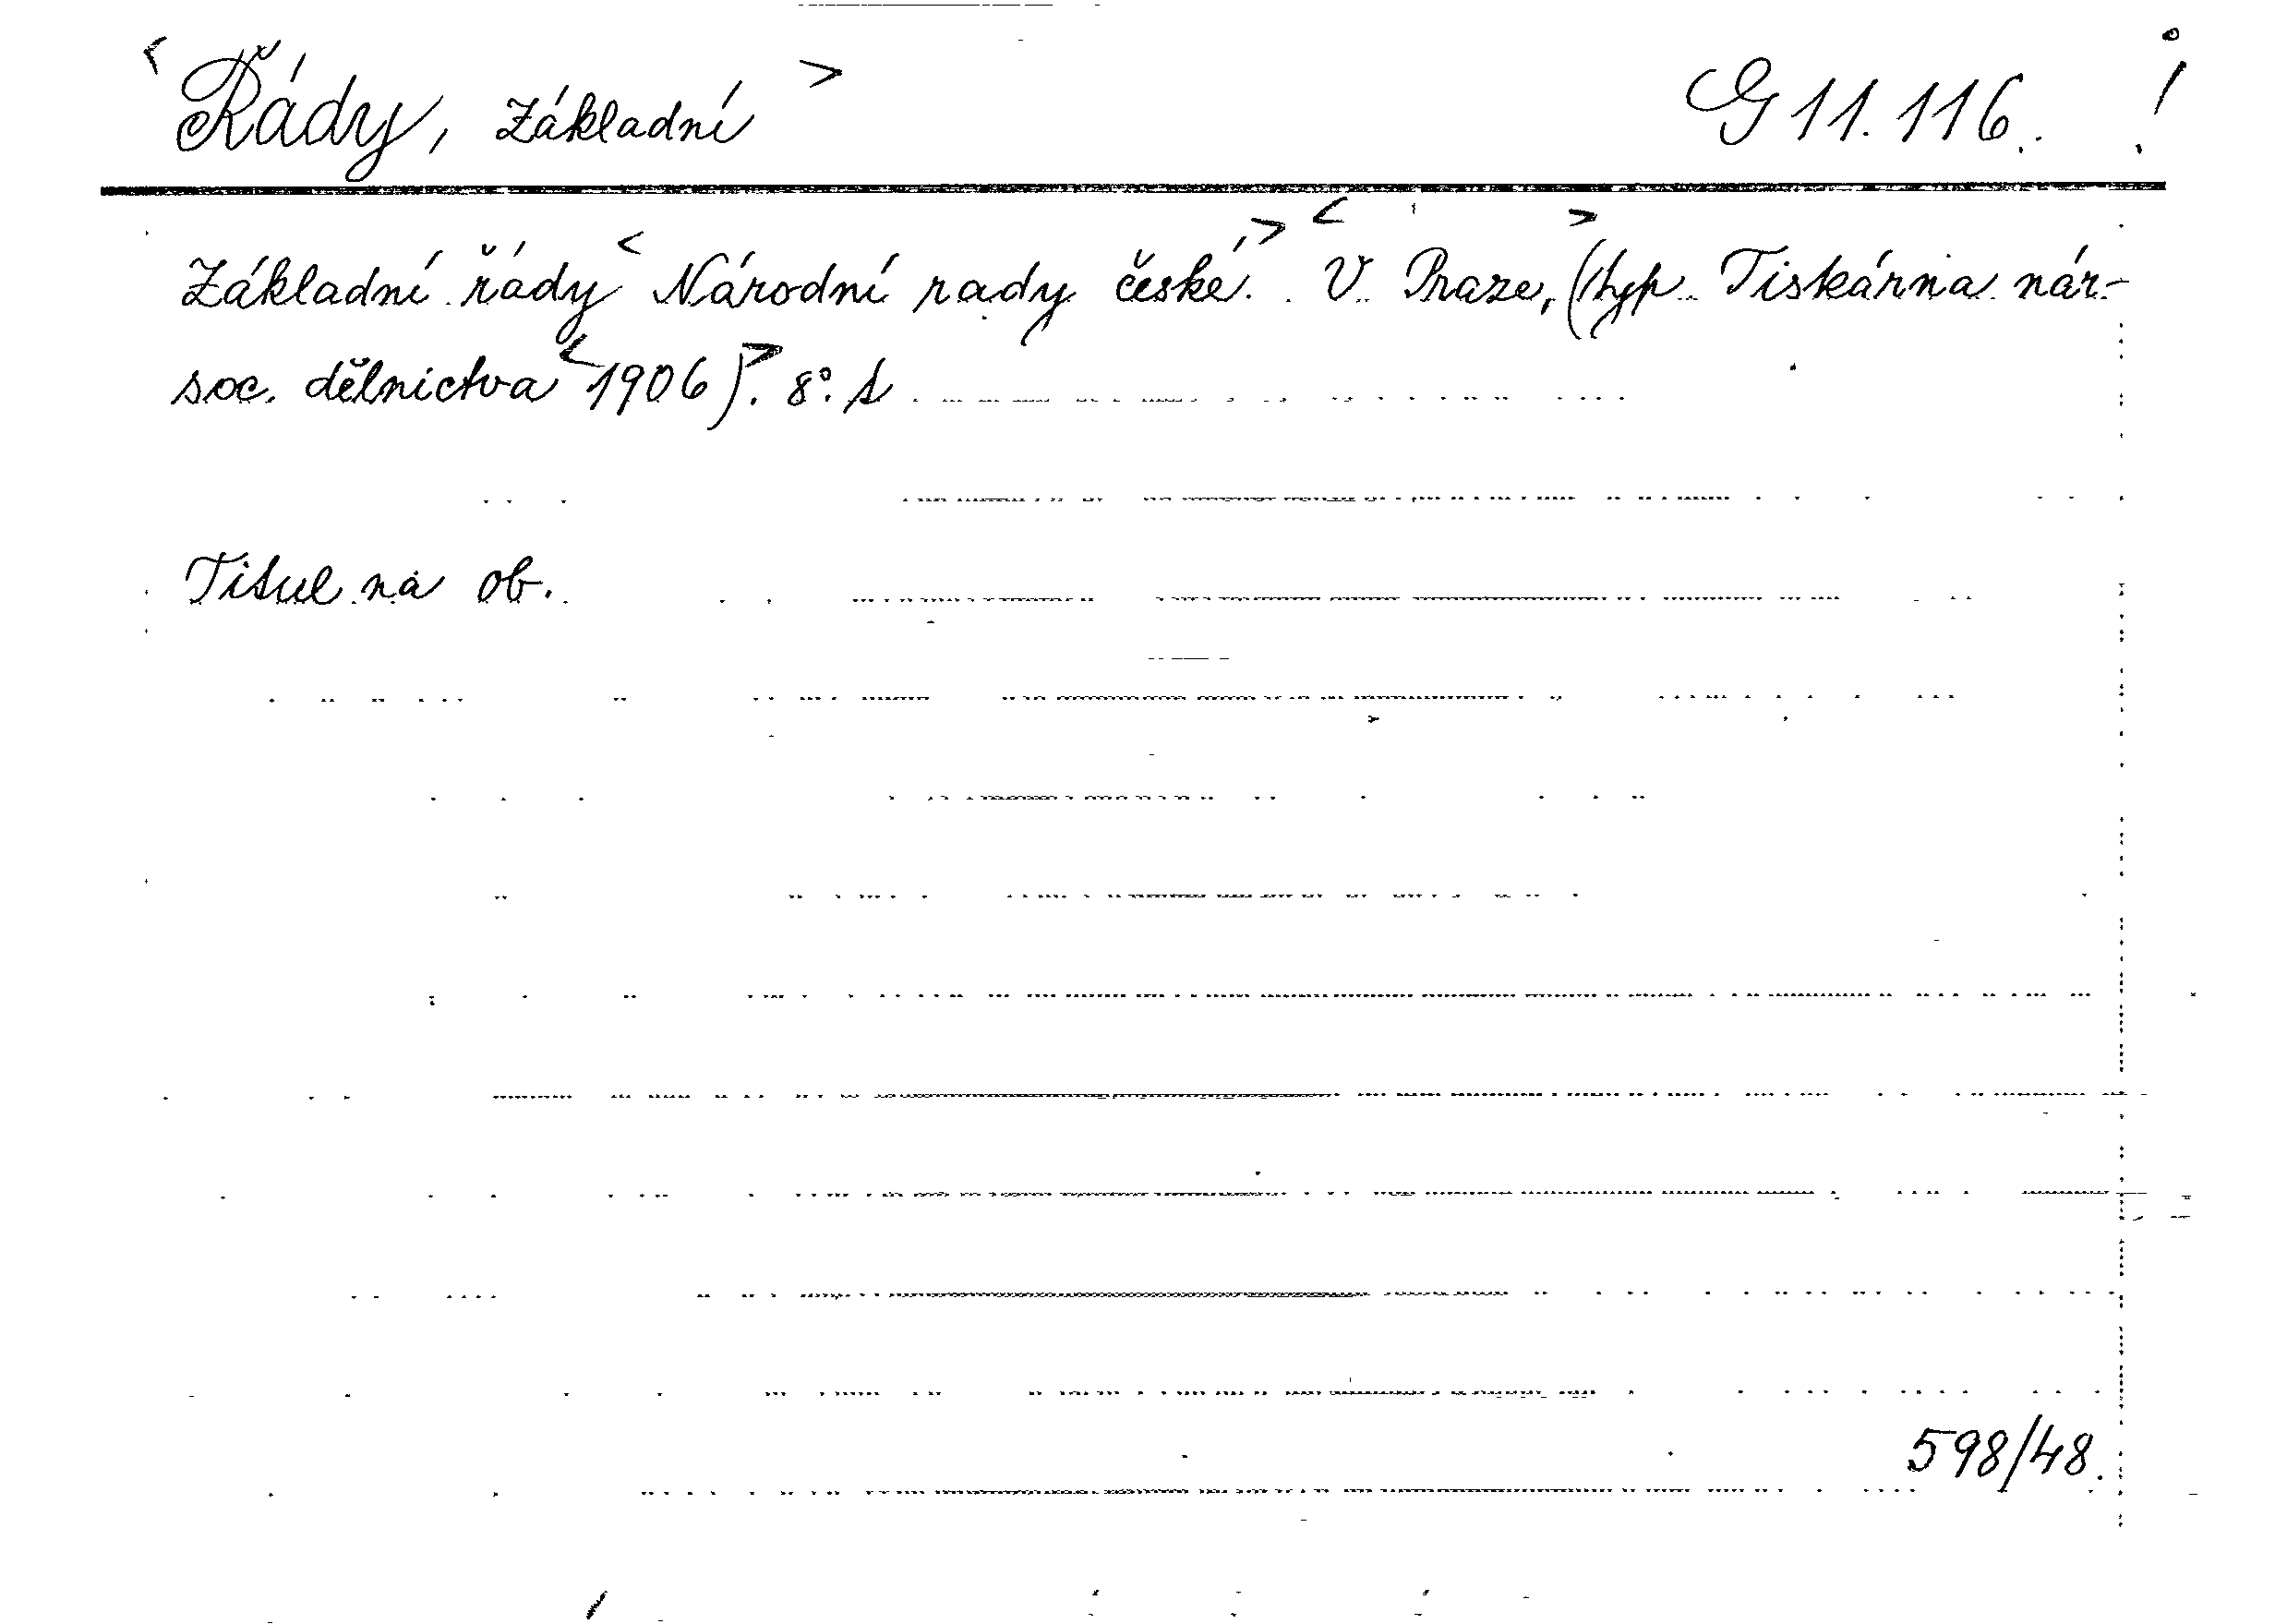 <Řády, základní> G 11.116. !
Základní řády <Národní rady české.> <V Praze,> (typ. Tiskárna nár.-
soc. dělnictva <1906).> 8°. s
Titul na ob.
598/48.